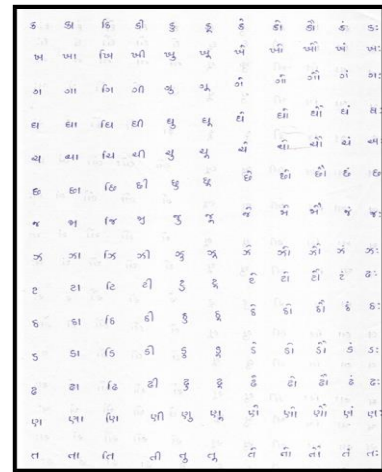 ક કા કિ કી કુ કૂ કે કો કૌ કં કઃ
ખ ખા ખિ ખી ખુ ખૂ ખે ખો ખૌ ખં ખઃ
ગ ગા ગિ ગી ગુ ગૂ ગે ગો ગૌ ગં ગઃ
ઘ ઘા ઘિ ઘી ઘુ ઘૂ ઘે ઘો ઘૌ ઘં ઘઃ
ચ ચા ચિ ચી ચુ ચૂ ચે ચો ચૌ ચં ચઃ
છ છા છિ છી છુ છૂ છે છો છૌ છં છઃ
જ જા જિ જી જુ જૂ જે જો જૌ જં જઃ
ઝ ઝા ઝિ ઝી ઝુ ઝૂ ઝે ઝો ઝૌ ઝં ઝઃ
ટ ટા ટિ ટી ટુ ટૂ ટે ટો ટૌ ટં ટઃ
ઠ ઠા ઠિ ઠી ઠુ ઠૂ ઠે ઠો ઠૌ ઠં ઠઃ
ડ ડા ડિ ડી ડુ ડૂ ડે ડો ડૌ ડં ડઃ
ઢ ઢા ઢિ ઢી ઢુ ઢૂ ઢે ઢો ઢૌ ઢં ઢઃ
ણ ણા ણિ ણી ણુ ણૂ ણે ણો ણૌ ણં ણઃ
ત તા તિ તી તુ તૂ તે તો તૌ તં તઃ